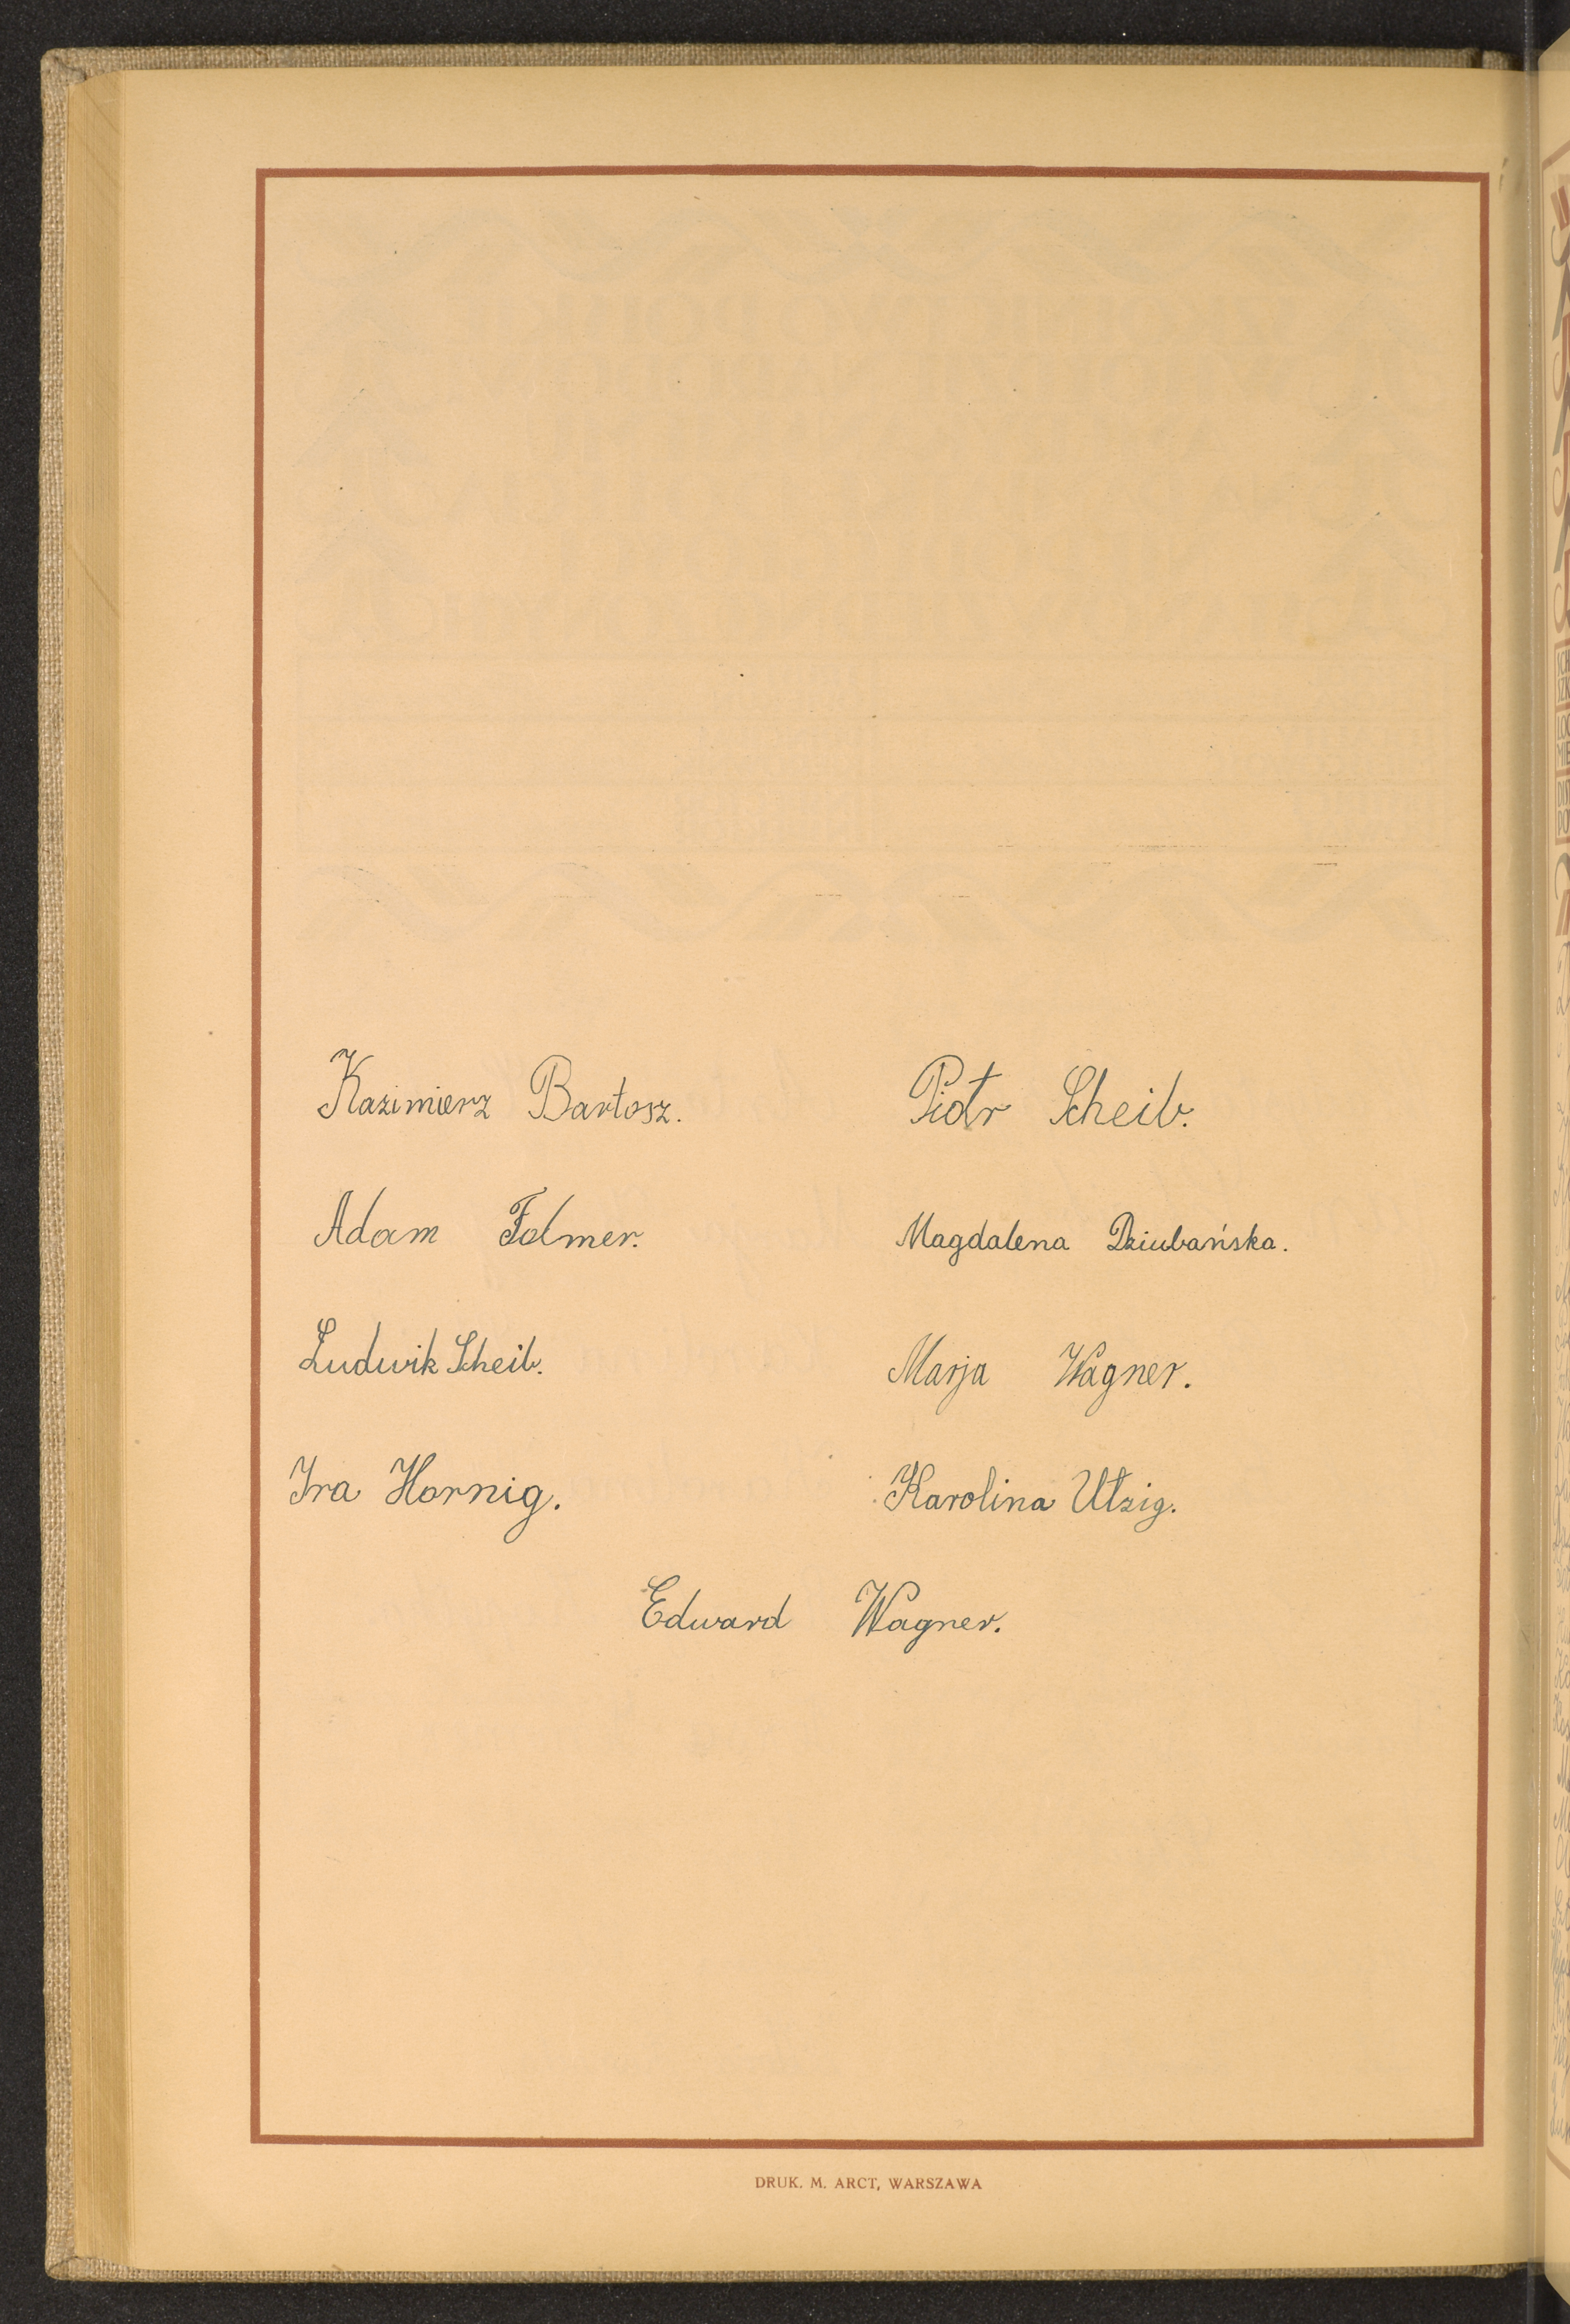 Kazimierz Bartosz.
Piotr Scheib.
Adam Folmer.
Magdalena Dziubańska.
Ludwik Scheib.
Marja Wagner.
Ira Hornig.
Karolina Utzig.
Edward Wagner.
DRUK. M. ARCT, WARSZAWA